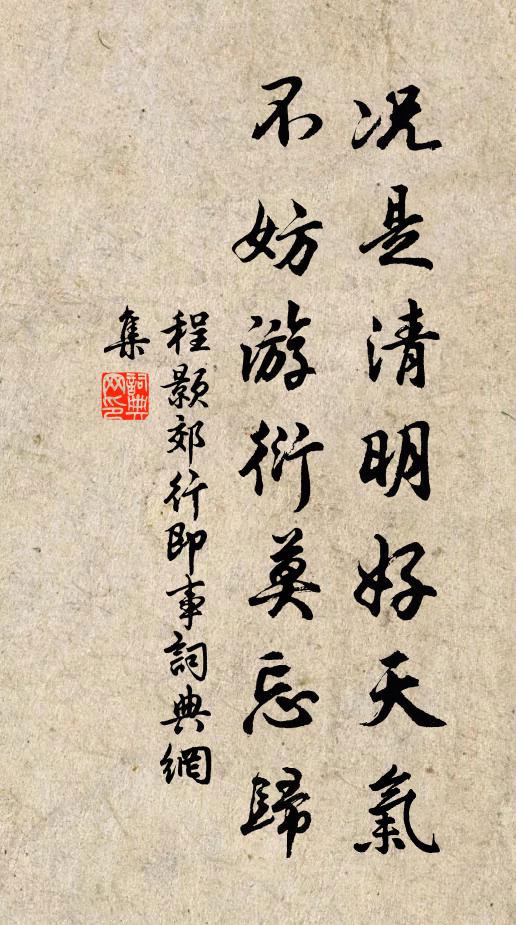 况是清明好天氣
不妨游衍莫忘歸
程颢郊行即事詞典網
集
詞典网印